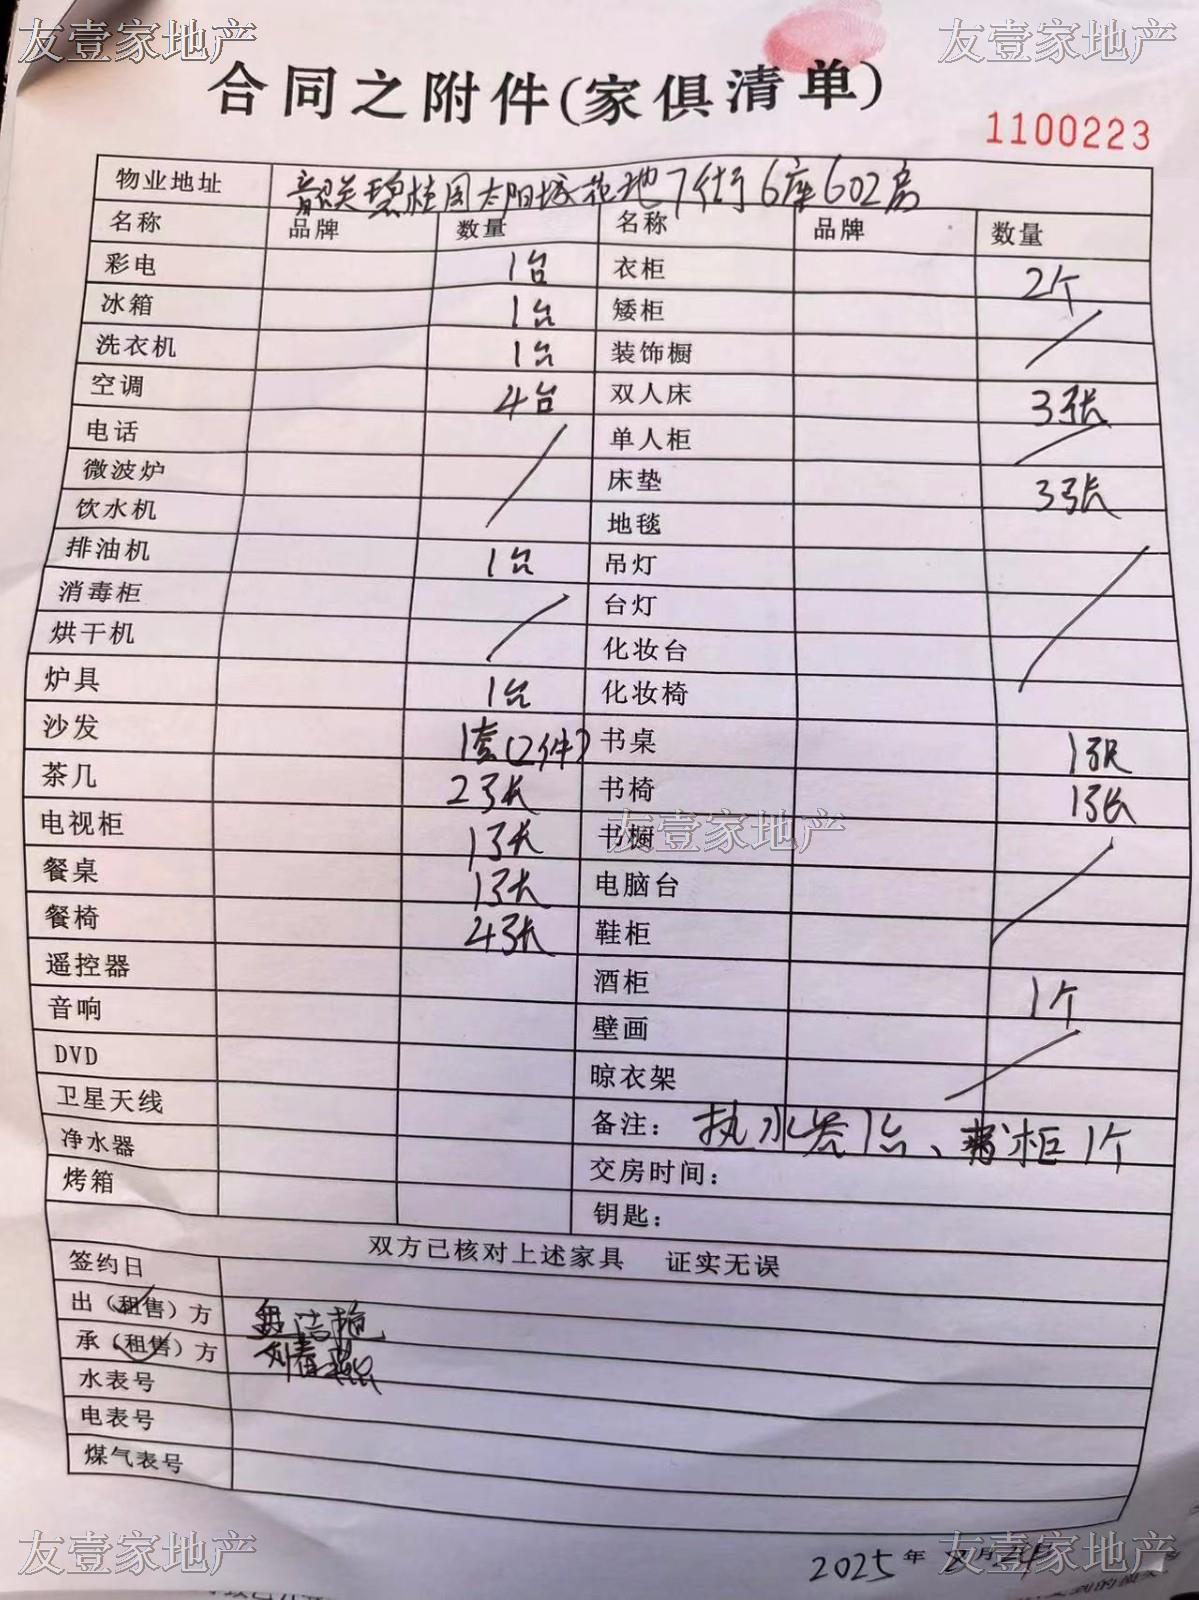 友壹家地产 友壹家地产
合同之附件(家俱清单)
1100223
物业地址 韶关碧桂园太阳城花地7街6座602房
名称 品牌 数量 名称 品牌 数量
彩电 1台 衣柜 2个
冰箱 1台 矮柜
洗衣机 1台 装饰橱
空调 4台 双人床 3张
电话 单人柜
微波炉 床垫 3张
饮水机 地毯
排油机 1台 吊灯
消毒柜 台灯
烘干机 化妆台
炉具 1台 化妆椅
沙发 1套(2件) 书桌 1张
茶几 2张 书椅 1张
电视柜 1张 书橱
友壹家地产
餐桌 1张 电脑台
餐椅 4张 鞋柜
遥控器 酒柜 1个
音响 壁画
DVD 晾衣架
卫星天线 备注：热水器1台、书柜1个
净水器 交房时间：
烤箱 钥匙：
双方已核对上述家具 证实无误
签约日
出（租售）方
承（租售）方 刘春
水表号
电表号
煤气表号
友壹家地产 友壹家地产
2025年 月